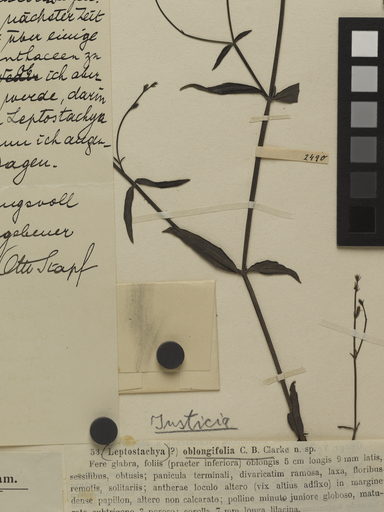 nächster Zeit
über einige
anthaceen zu
ich aber
werde, darin
Leptostachya
nn ich augen-
sagen.
ungsvoll
gebener
Otto Stapf
2490
Justicia
53/(Leptostachya)?) oblongifolia C. B. Clarke n. sp.
Fere glabra, foliis (praeter inferiora) oblongis 5 cm longis 9 mm latis,
sessilibus, obtusis; panicula terminali, divaricatim ramosa, laxa, floribus
remotis, solitariis; antherae loculo altero (vix altius adfixo) in margine
dense papilloso, altero non calcarato; polline minute juniore globoso, matu-
am.